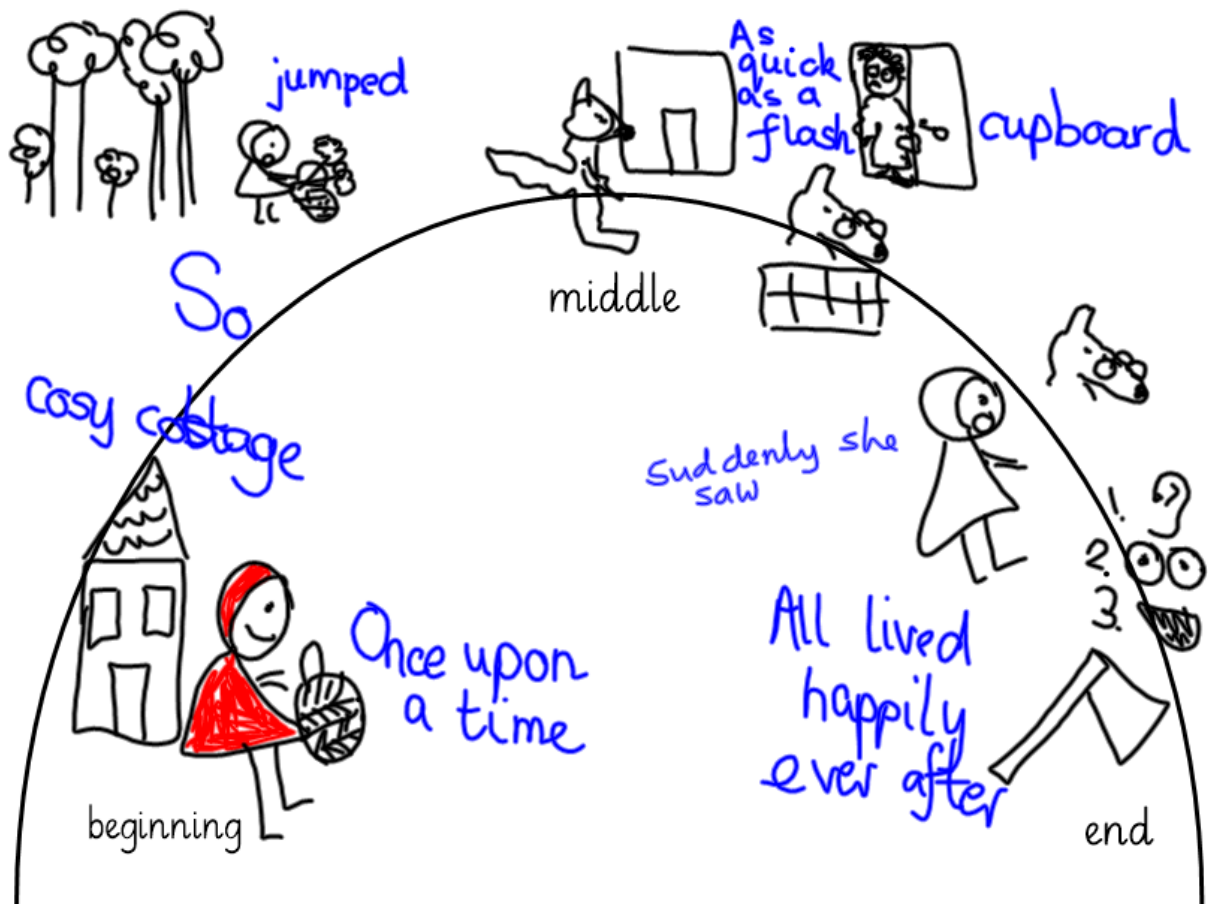 jumped
As
quick
as a
flash
cupboard
So
middle
cosy cottage
Suddenly she
saw
1.
2.
3.
Once upon
a time
All lived
happily
ever after
beginning
end